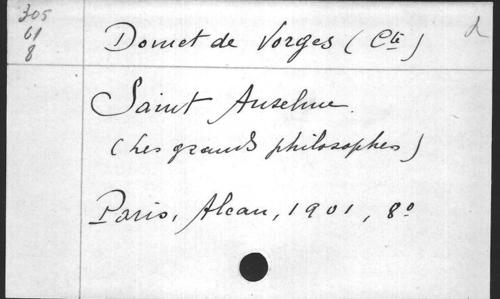 305
61
8
Domet de Vorges (Cte)
d
Saint Anselme.
(Les grands philosophes)
Paris, Alcan, 1901, 8º